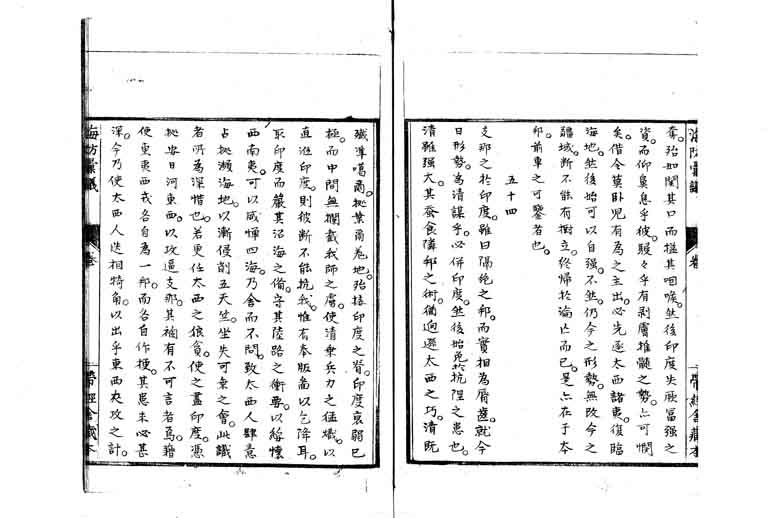 奪。殆如閼其口而搤其咽喉。然後印度失厥富强之
資。而仰鼻息乎彼。駸々乎有剥膚推髓之勢。亦可憫
矣。借令莫臥児有為之主出。必先逐太西諸夷。復臨
海地。然後始可以自强。不然仍今之形勢。無改今之
疆域。断不能有樹立。終帰於淪亡而已。是亦在于本
邦前車之可鑒者也。
五十四
支那之於印度。雖曰隔絶之邦。而實相為唇齒。就今
日形勢。為清謀乎。必併印度。然後始免於抗隉之患也。
清雖强大。其蚕食隣邦之術。猶逈遜太西之巧。清既
殱準噶爾。拠葉爾羌地。殆搤印度之脊。印度衰弱已
極。而中間無攔截我師之虜。使清乗兵力之猛熾。以
直進印度。則彼断不能抗我。惟有奉版圖以乞降耳。
取印度而嚴其沿海之備。守其陸路之衝要。以綏懐
西南夷。可以威憚四海。乃舎而不問。致太西人肆意
占拠瀕海地。以漸侵削五天竺。坐失可乗之會。此識
者所為深惜也。若更任太西之狼貪。使之盡印度。憑
拠安日河東西。以攻逼支那。其禍有不可言者焉。籍
使東夷西戎各自為一邦。而各自作梗。其患未必甚
深。今乃使太西人迭相犄角。以出乎東西夾攻之計。
海防彙議
巻
帶經舎蔵本
海防彙議
巻
帶經舎蔵本